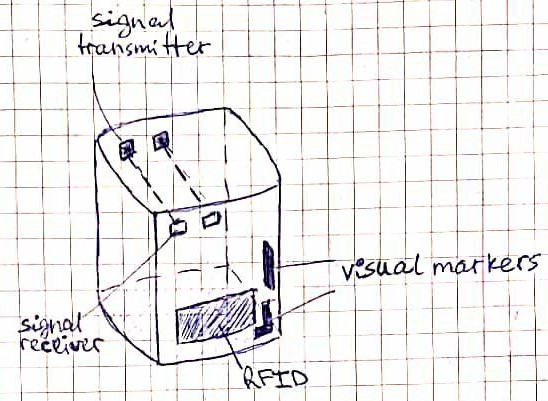 signal
transmitter
visual markers
signal
reciever
RFID